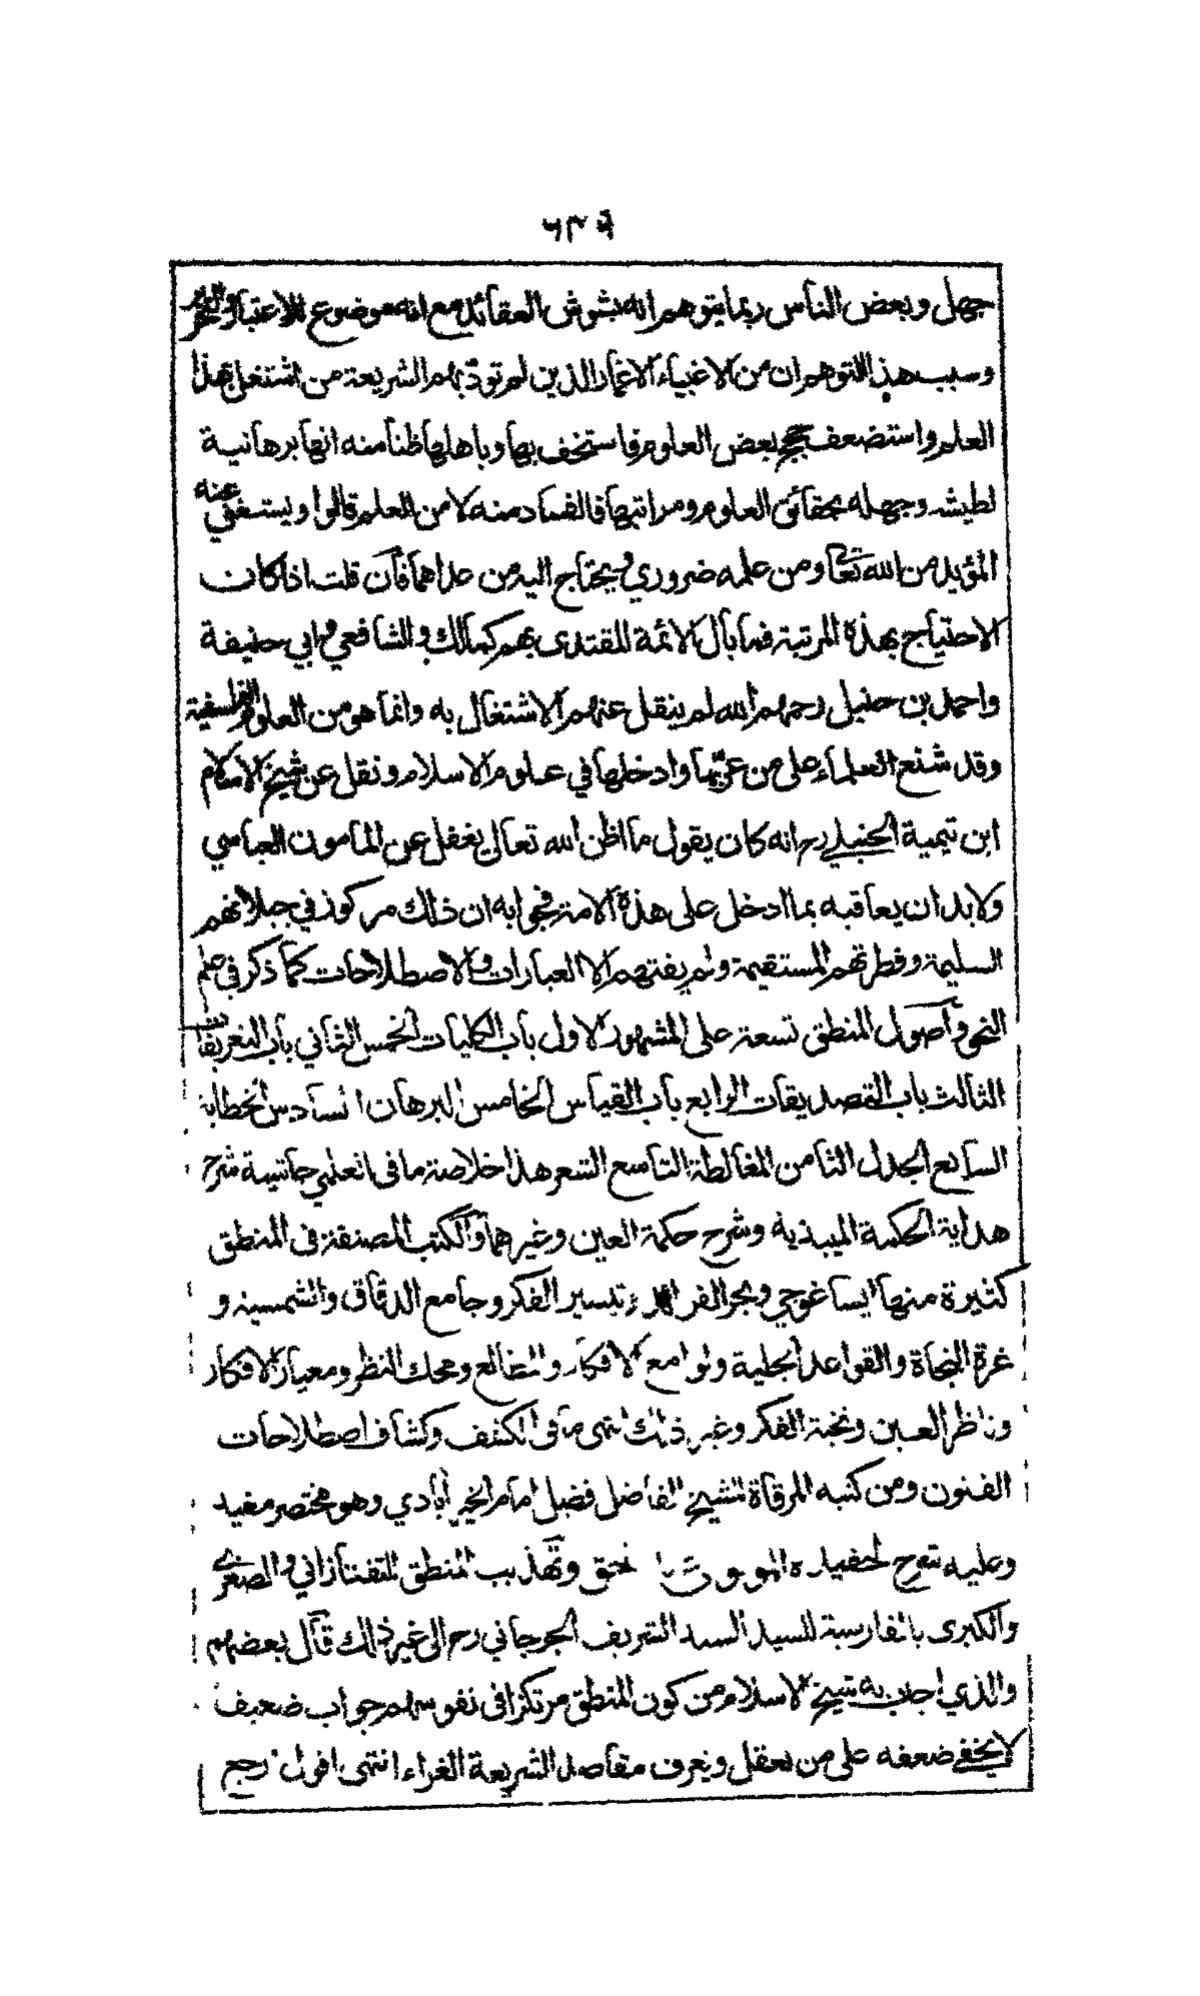 ٦٣٩
جهل وبعض الناس ربما يتوهم انه يشوش العقائد مع انه موضوع للاعتبار والتحرير
وسبب هذا التوهم ان من الاغبياء الاغمار الذين لم تودبهم الشريعة من اشتغل بهذا
العلم واستضعف حجج بعض العلوم فاستخف بها وباهلها ظنا منه انها برهانية
لطيشه وجهله بحقائق العلوم ومراتبها فالفساد منه لا من العلم قالوا ويستغني عنه
المؤيد من الله تعالى ومن علمه ضروري ويحتاج اليه من عداهما فان قلت اذا كان
الاحتياج بهذه المرتبة فما بال الائمة المقتدى بهم كمالك والشافعي وابي حنيفة
واحمد بن حنبل رحمهم الله لم ينقل عنهم الاشتغال به وانما هو من العلوم الفلسفية
وقد شنع العلماء على من عربها وادخلها في علوم الاسلام ونقل عن شيخ الاسلام
ابن تيمية الحنبلي رح انه كان يقول ما اظن الله تعالى يغفل عن المامون العباسي
ولا بد ان يعاقبه بما ادخل على هذه الامة فجوابه ان ذلك مركوز في جبلاتهم
السليمة وفطرتهم المستقيمة ولم يفتهم الا العبارات والاصطلاحات كما ذكر في علم
النحو واصول المنطق تسعة على المشهور الاول باب الكليات الخمس الثاني باب التعريفات
الثالث باب التصديقات الرابع باب القياس الخامس البرهان السادس الخطابة
السابع الجدل الثامن المغالطة التاسع الشعر هذا خلاصة ما في العلمي حاشية شرح
هداية الحكمة الميبذية وشرح حكمة العين وغيرهما والكتب المصنفة في المنطق
كثيرة منها ايساغوجي وبحر الفرائد وتيسير الفكر وجامع الدقاق والشمسية و
غرة النجاة والقواعد الجلية ولوامع الافكار والمطالع ومحك النظر ومعيار الافكار
وناظر العين ونخبة الفكر وغير ذلك انتهى ما في الكشف وكشاف اصطلاحات
الفنون ومن كتبه المرقاة للشيخ الفاضل فضل امام الخير ابادي وهو مختصر مفيد
وعليه شرح لحفيده المولوي عبد الحق وتهذيب المنطق للتفتازاني والصغرى
والكبرى بالفارسية للسيد السند الشريف الجرجاني رح الى غير ذلك قال بعضهم
والذي اجاب به شيخ الاسلام من كون المنطق مرتكزا في نفوسهم جواب ضعيف
لا يخفى ضعفه على من يعقل ويعرف مقاصد الشريعة الغراء انتهى اقول رجع